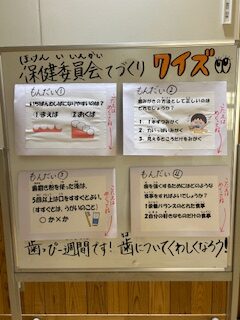 ほけんいいんかい
保健委員会てづくり クイズ
もんだい①
いちばんむしばになりやすいのは?
1 まえば 2 おくば
もんだい②
歯みがきの方法として正しいのは
どれでしょうか?
1 1本ずつみがく
2 たいっぱいみがく
3 見えるところだけをみがく
もんだい③
歯磨き粉を使った後は、
5回以上は口をすすぐとよい。
(すすぐとは、うがいのこと)
○か×か
もんだい④
歯を強くするためにはどのような
食事をすればよいでしょう?
1 栄養バランスのとれた食事
2 自分の好きなものだけの食事
歯っぴー週間です! 歯についてくわしくなろう!